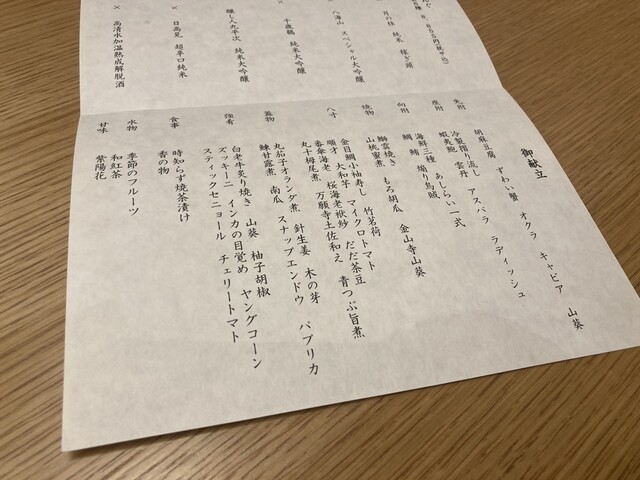 御献立
先附 胡麻豆腐 ずわい蟹 オクラ キャビア 山葵
座附 冷製摺り流し アスパラ ラディッシュ
蝦夷鮑 雲丹
向附 海鮮三種 あしらい一式
鯛 鮪 煽り烏賊
焼物 鰤雲焼き もろ胡瓜 金山寺山葵
山桃蜜煮
八寸 金目鯛小袖寿し 竹茗荷
順才 大和芋 マイクロトマト
番傘海老 桜海老袱紗 だだ茶豆
丸十梔尾煮 万願寺土佐和え 青つぶ旨煮
蓋物 丸茄子オランダ煮 針生姜 木の芽
鰊甘露煮 南瓜 スナップエンドウ パプリカ
強肴 白老牛炙り焼き 山葵 柚子胡椒
ズッキーニ インカの目覚め ヤングコーン
スティックセニョール チェリートマト
食事 時知らず焼茶漬け
香の物
水物 季節のフルーツ
和紅茶
甘味 紫陽花
月の桂 純米 稼ぎ頭
八海山 スペシャル大吟醸
× 千歳鶴 純米大吟醸
醸し人九平次 純米大吟醸
× 日高見 超辛口純米
× 高清水加温熟成解脱酒